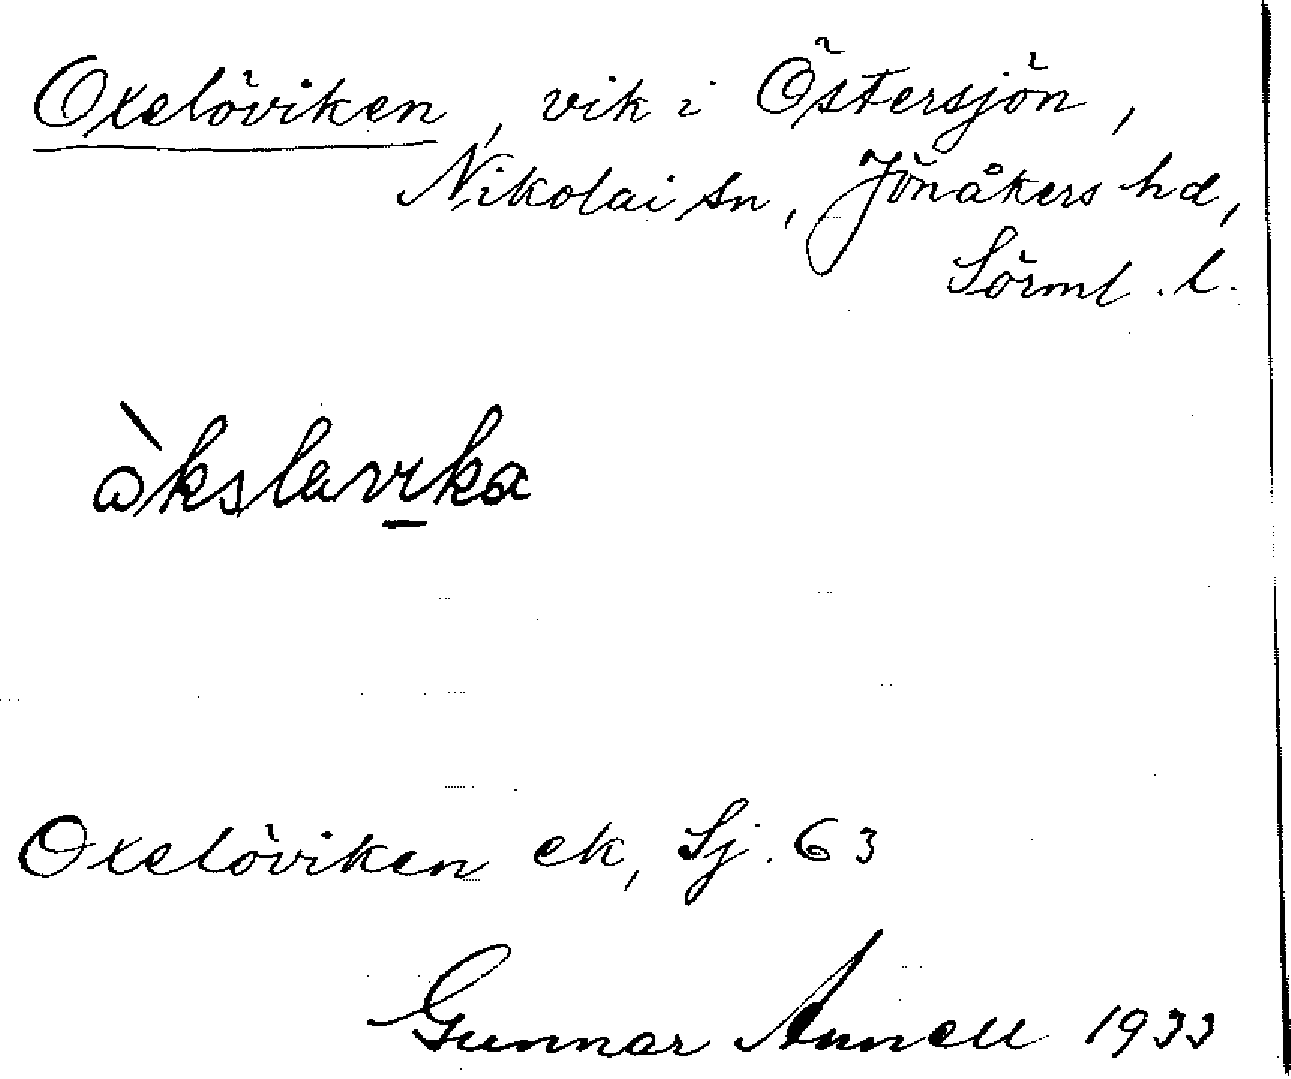 Oxelöviken, vik i Östersjön,
Nikolai sn, Jönåkers hd,
Sörml. l.
àkslavıka
Oxelöviken ek, Sj. 63
Gunnar Annell 1933